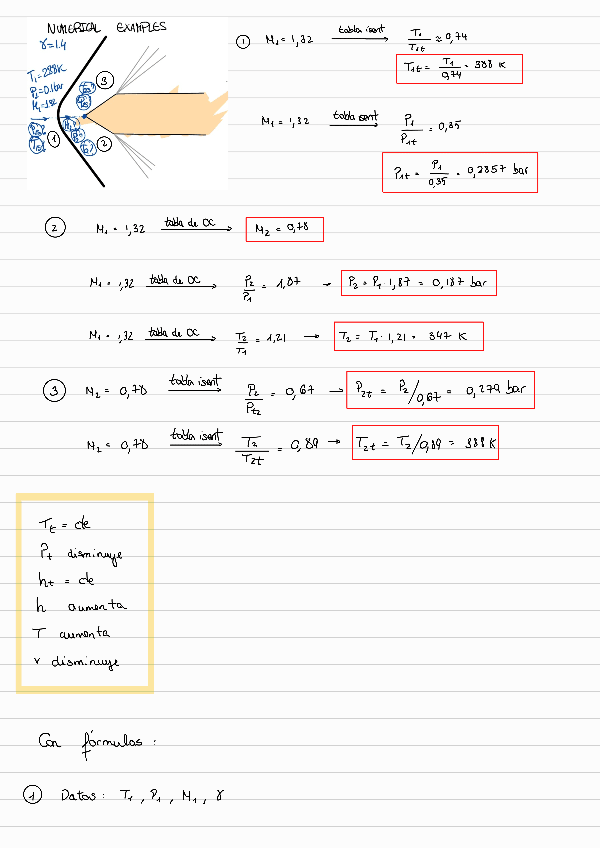 NUMERICAL EXAMPLES
γ=1.4
T₁=288K
P₁=0.1bar
M₁=1.32
① M₁ = 1,32 tabla isent → T₁/T₁t ≈ 0,74
T₁t = T₁/0,74 = 388 K
M₁ = 1,32 tabla isent → P₁/P₁t = 0,35
P₁t = P₁/0,35 = 0,2857 bar
② M₁ = 1,32 tabla de OC → M₂ = 0,78
M₁ = 1,32 tabla de OC → P₂/P₁ = 1,87 → P₂ = P₁ · 1,87 = 0,187 bar
M₁ = 1,32 tabla de OC → T₂/T₁ = 1,21 → T₂ = T₁ · 1,21 = 347 K
③ M₂ = 0,78 tabla isent → P₂/Pt₂ = 0,67 → P₂t = P₂/0,67 = 0,279 bar
M₂ = 0,78 tabla isent → T₂/T₂t = 0,89 → T₂t = T₂/0,89 = 388 K
Tt = cte
Pt disminuye
ht = cte
h aumenta
T aumenta
v disminuye
Con fórmulas :
① Datos : T₁ , P₁ , M₁ , γ